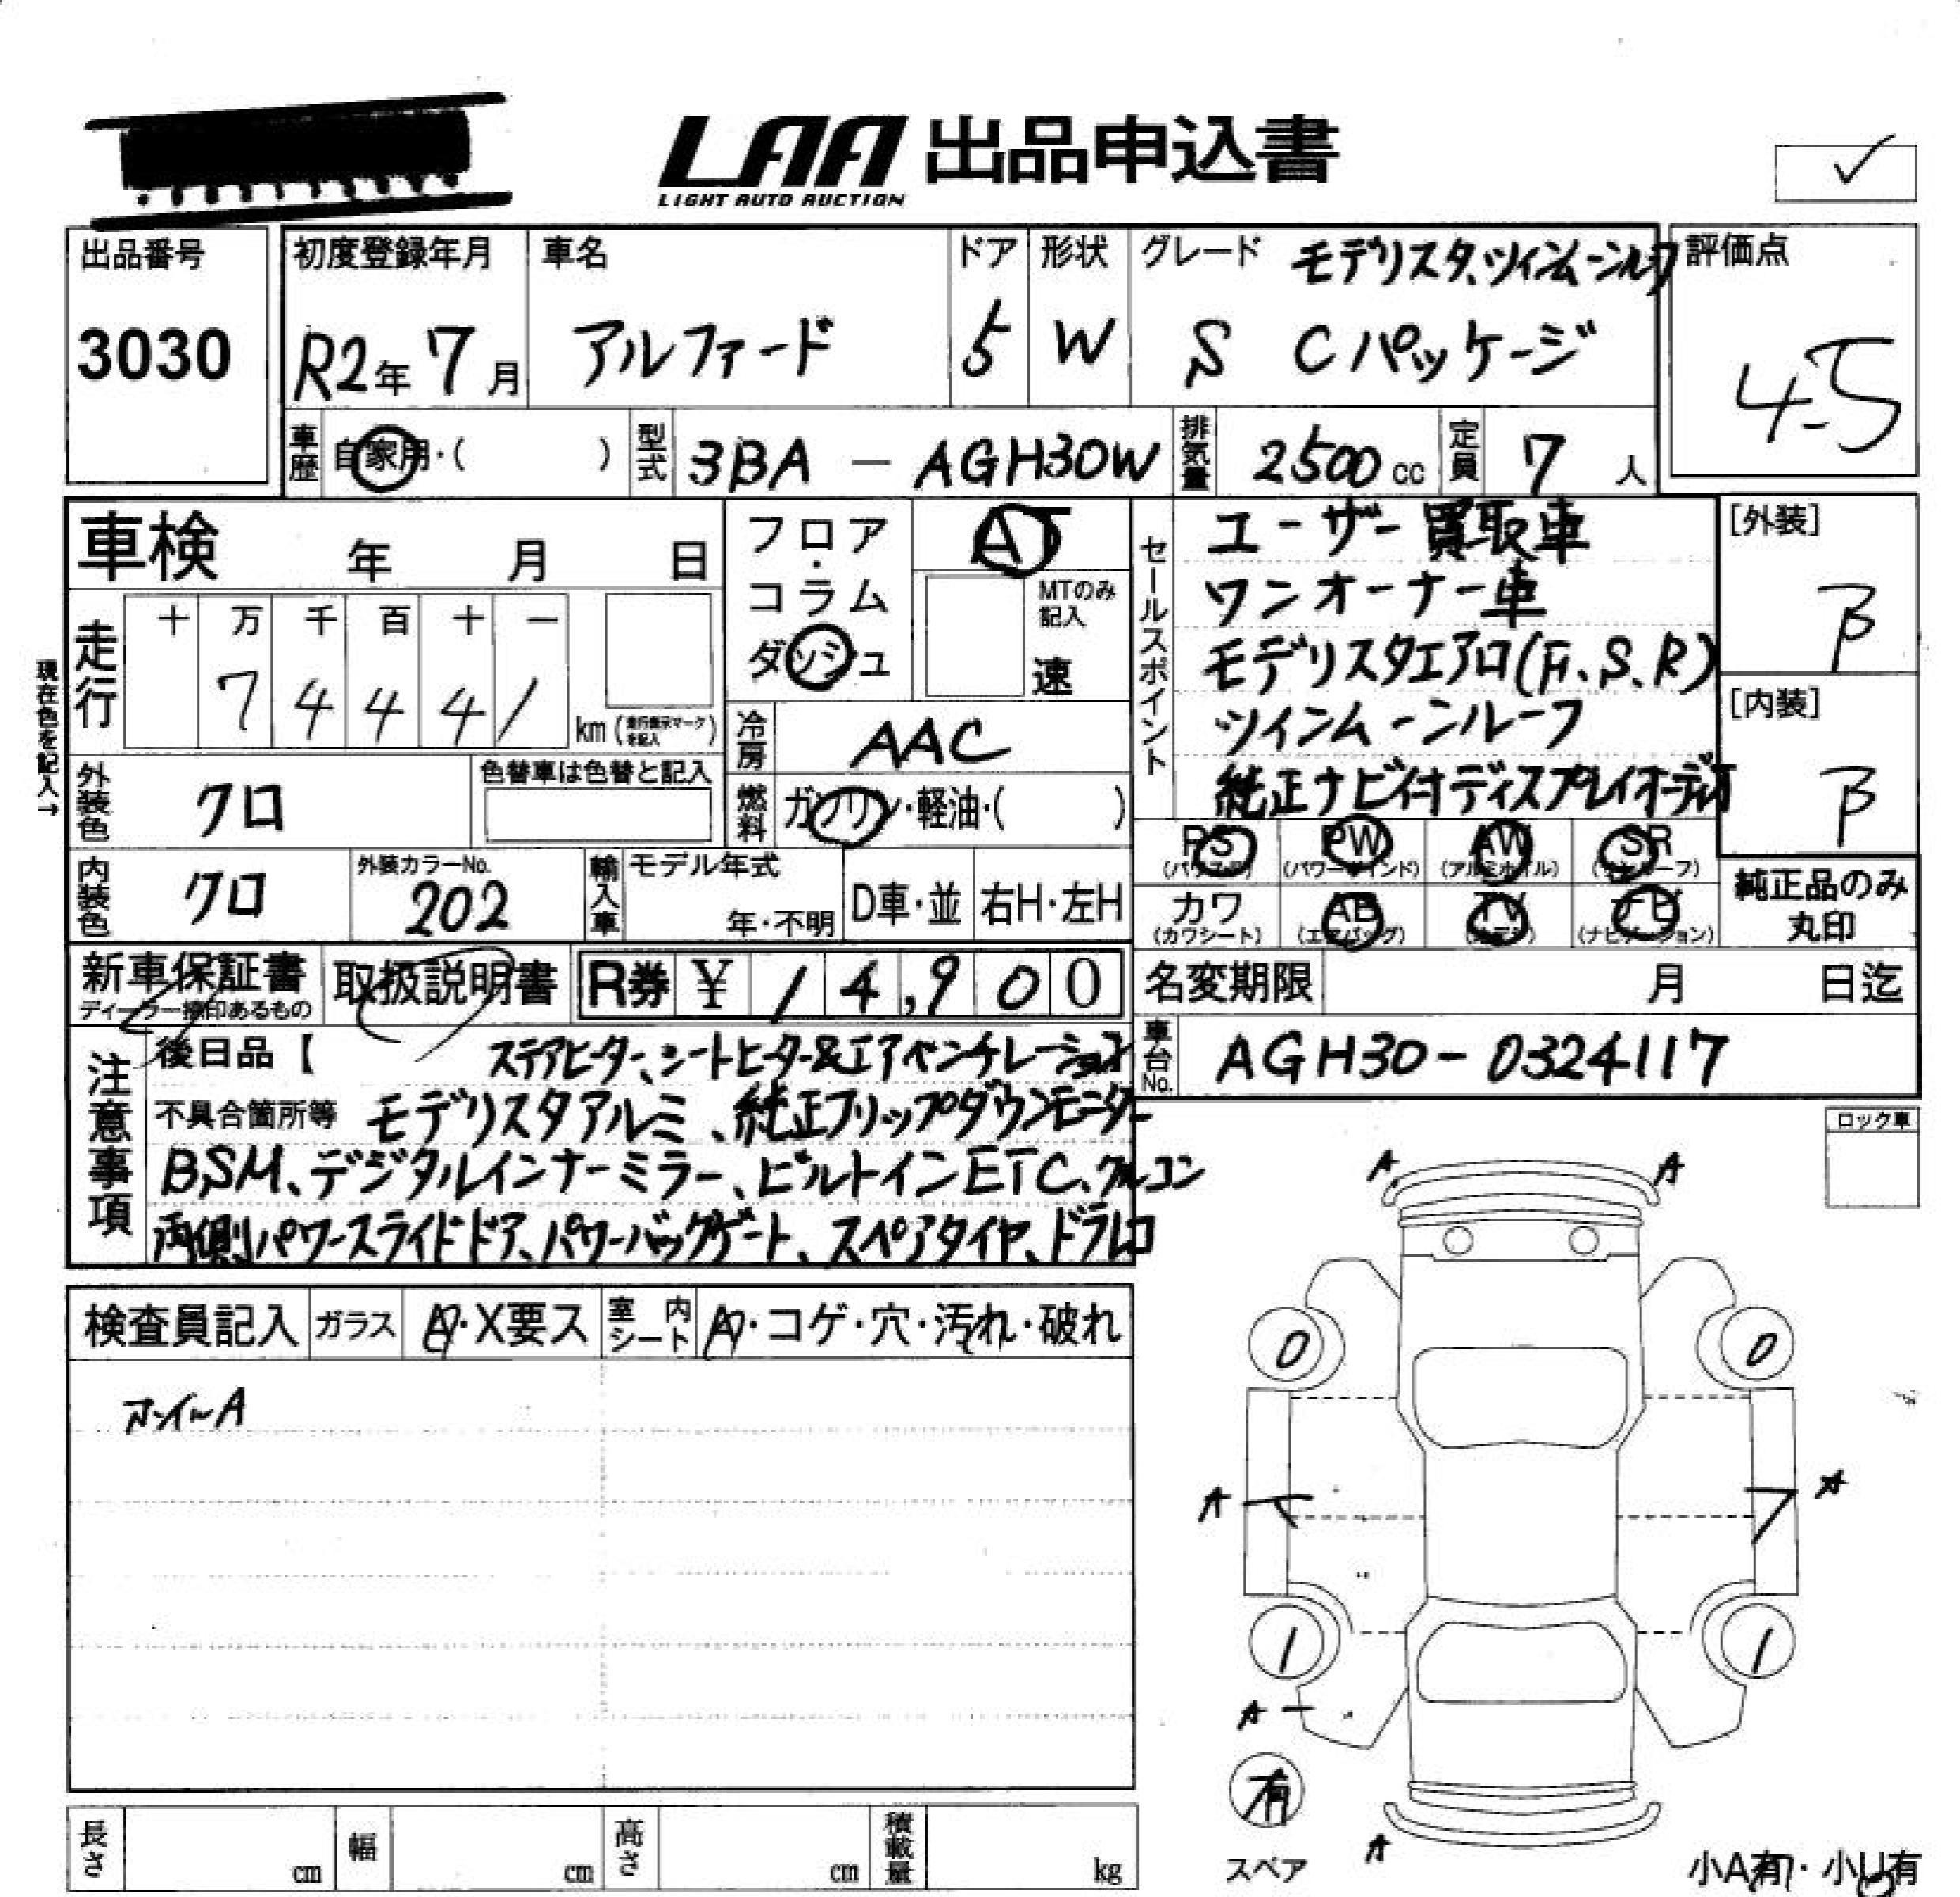 LAA 出品申込書
LIGHT AUTO AUCTION
✓
出品番号
3030
初度登録年月
R2年 7月
車名
アルファード
ドア
5
形状
W
グレード モデリスタ、ツインムーンルーフ
S Cパッケージ
評価点
4.5
車歴 自家用・( )
型式 3BA - AGH30W
排気量 2500 cc
定員 7 人
車検 年 月 日
現在色を記入→
走行 十 万 千 百 十 一
7 4 4 4 1
km (走行表示マークを記入)
フロア・コラム
ダッシュ
AT
MTのみ記入
速
冷房 AAC
燃料 ガソリン・軽油・( )
外装色 クロ
色替車は色替と記入
内装色 クロ
外装カラーNo.
202
輸入車 モデル年式
年・不明
D車・並
右H・左H
セールスポイント
ユーザー買取車
ワンオーナー車
モデリスタエアロ(F、S、R)
ツインムーンルーフ
純正ナビ付ディスプレイオーディオ
[外装]
B
[内装]
B
PS PW AW SR
(パワステ) (パワーウインド) (アルミホイル) (サンルーフ)
カワ AB TV ナビ
(カワシート) (エアバッグ) (テレビ) (ナビゲーション)
純正品のみ
丸印
新車保証書
ディーラー捺印あるもの
取扱説明書
R券 ¥ 14,900
名変期限 月 日迄
車台No. AGH30-0324117
注意事項
後日品【 ステアヒーター、シートヒーター&エアベンチレーション
不具合箇所等 モデリスタアルミ、純正フリップダウンモニター
BSM、デジタルインナーミラー、ビルトインETC、クルコン
両側パワースライドドア、パワーバックゲート、スペアタイヤ、ドラレコ
ロック車
検査員記入 ガラス A・X要ス 室内シート ・コゲ・穴・汚れ・破れ
ホイールA
A A
0 0
A A
1 1
A
有
スペア
A
小A有・小U有
長さ cm 幅 cm 高さ cm 積載量 kg